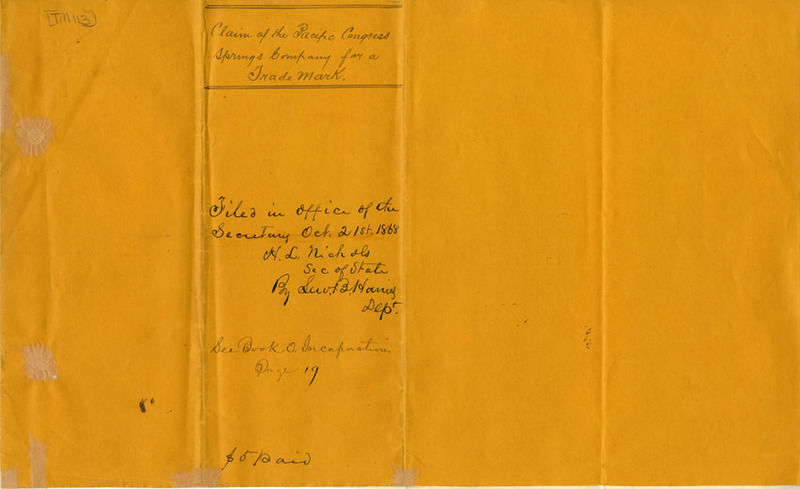 [TM 113]
Claim of the Pacific Congress
Springs Company for a
Trade Mark.
Filed in office of the
Secretary Oct. 21st. 1868
H. L. Nichols
Sec of State
By Lew. B. Harris
Dept.
See Book O. Incorporation
Page 19
$5 Paid